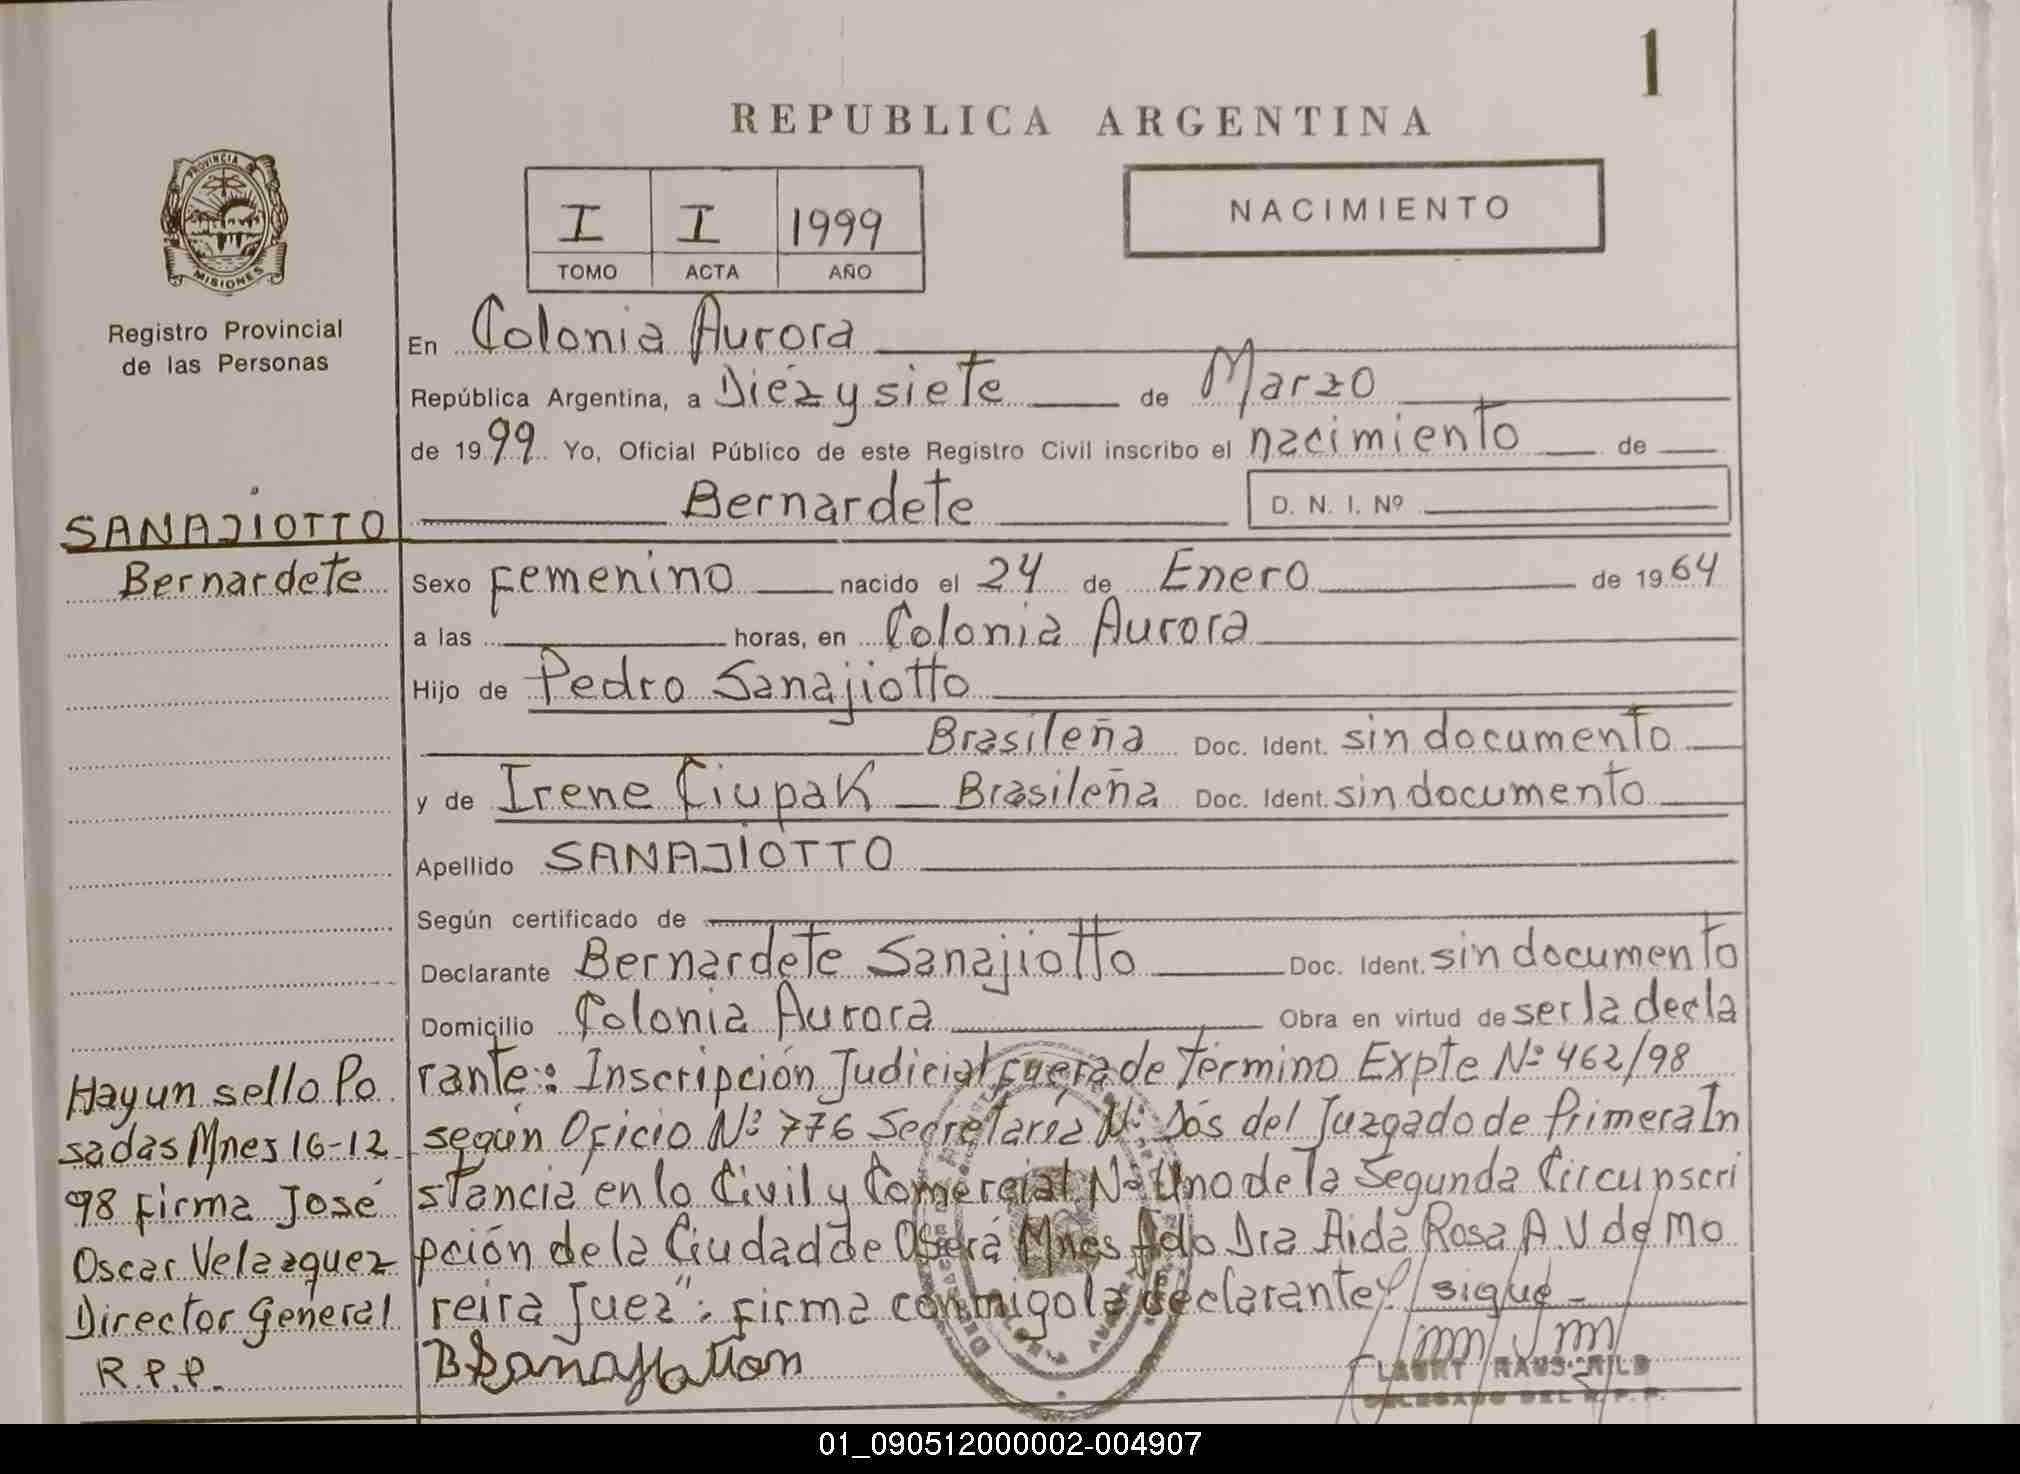 1
REPUBLICA ARGENTINA
PROVINCIA
MISIONES
I I 1999
TOMO ACTA AÑO
NACIMIENTO
Registro Provincial
de las Personas
En Colonia Aurora
República Argentina, a Diéz y siete de Marzo
de 1999 Yo, Oficial Público de este Registro Civil inscribo el nacimiento de
Bernardete D. N. I. Nº
SANAJIOTTO
Bernardete
Sexo femenino nacido el 24 de Enero de 1964
a las horas, en Colonia Aurora
Hijo de Pedro Sanajiotto
Brasileña Doc. Ident. sin documento
y de Irene Ciupak Brasileña Doc. Ident. sin documento
Apellido SANAJIOTTO
Según certificado de
Declarante Bernardete Sanajiotto Doc. Ident. sin documento
Domicilio Colonia Aurora Obra en virtud de ser la decla
rante: Inscripción Judicial fuera de término Expte Nº 462/98
según Oficio Nº 776 Secretaría Nº Dós del Juzgado de Primera In
stancia en lo Civil y Comercial Nº Uno de la Segunda Circunscri
pción de la Ciudad de Oberá Mnes Fdo Dra Aida Rosa A. V de Mo
reira Juez": firma conmigo la declarante sigue
Hay un sello Po
sadas Mnes 16-12
98 firma José
Oscar Velazquez
Director General
R.P.P.
DELEGADO DEL R.P.P.
01_090512000002-004907